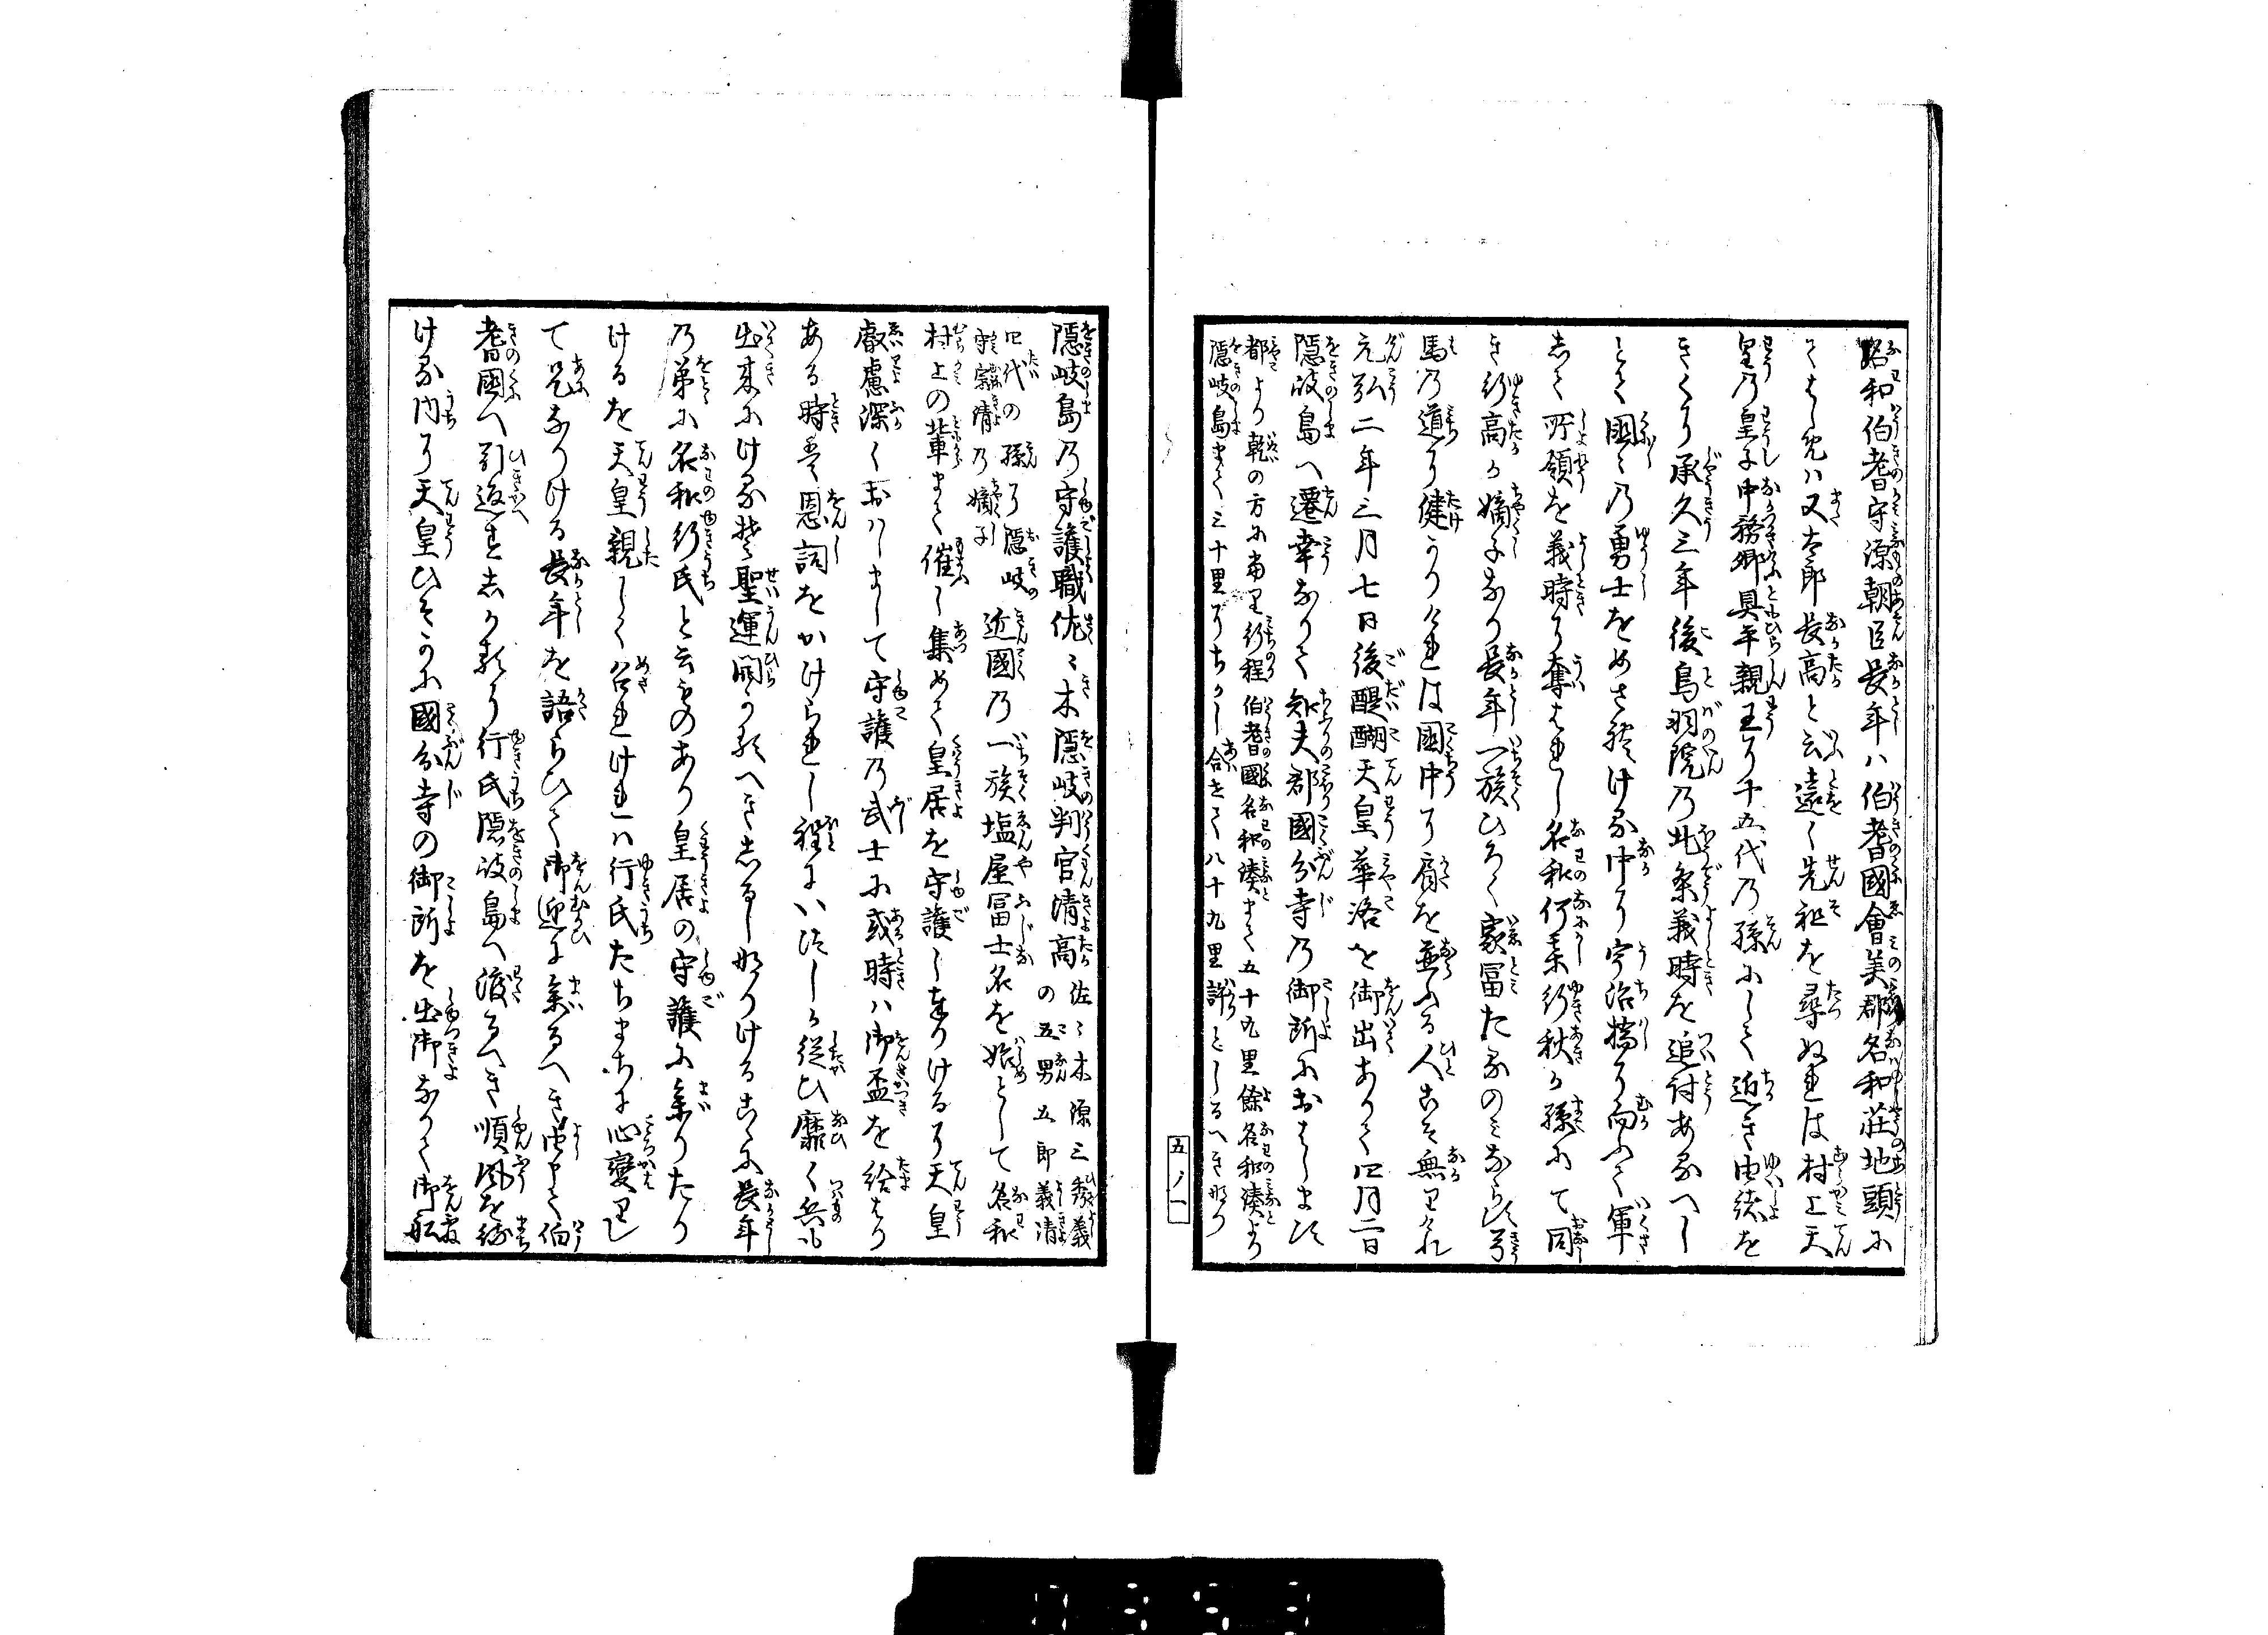 名和伯耆守源朝臣長年ハ伯耆國會美郡名和荘地頭に
てはしめハ又太郎長高と云遠く先祖を尋ぬれは村上天
皇乃皇子中務卿具平親王より十五代乃孫にして近き由緒を
きくに承久三年後鳥羽院乃北条義時を追討あるへし
とて國々乃勇士をめさせける中に宇治橋に向ふて軍
して所領を義時に奪はれし名和何某行秋か孫にて同
き行高か嫡子なり長年一族ひろく家冨たるのミならす弓
馬乃道に健かりけれは國中に肩を並ふる人こそ無りけれ
元弘二年三月七日後醍醐天皇華洛を御出ありて四月二日
隠岐島へ遷幸なりて知夫郡國分寺乃御所におはします
都より乾の方に當り行程伯耆國名和湊まて五十九里餘名和湊より
隠岐島まて三十里にちかし合せて八十九里許としるへきなり
隠岐島乃守護職佐々木隠岐判官清高佐々木源三秀義
の五男五郎義清
四代の孫に隠岐
守宗清乃嫡子
近國乃一族塩屋冨士名を始として名和
村上の輩まて催し集めて皇居を守護し奉りけるに天皇
叡慮深くおはしまして守護乃武士に或時ハ御盃を給はり
ある時ハ恩詞をかけられし程にいつしか従ひ靡く兵も
出来にける其聖運開かるへきしるしなりけるこゝに長年
乃弟に名和行氏と云ものあり皇居の守護に参りたり
けるを天皇親しく召れけれハ行氏たちまちに心變りし
て兄なりける長年を語らひて御迎に参るへき由申て伯
耆國へ引返ししかるに行氏隠岐島へ渡るへき順風を待
ける内に天皇ひそかに國分寺の御所を出御なりて御船
五ノ一